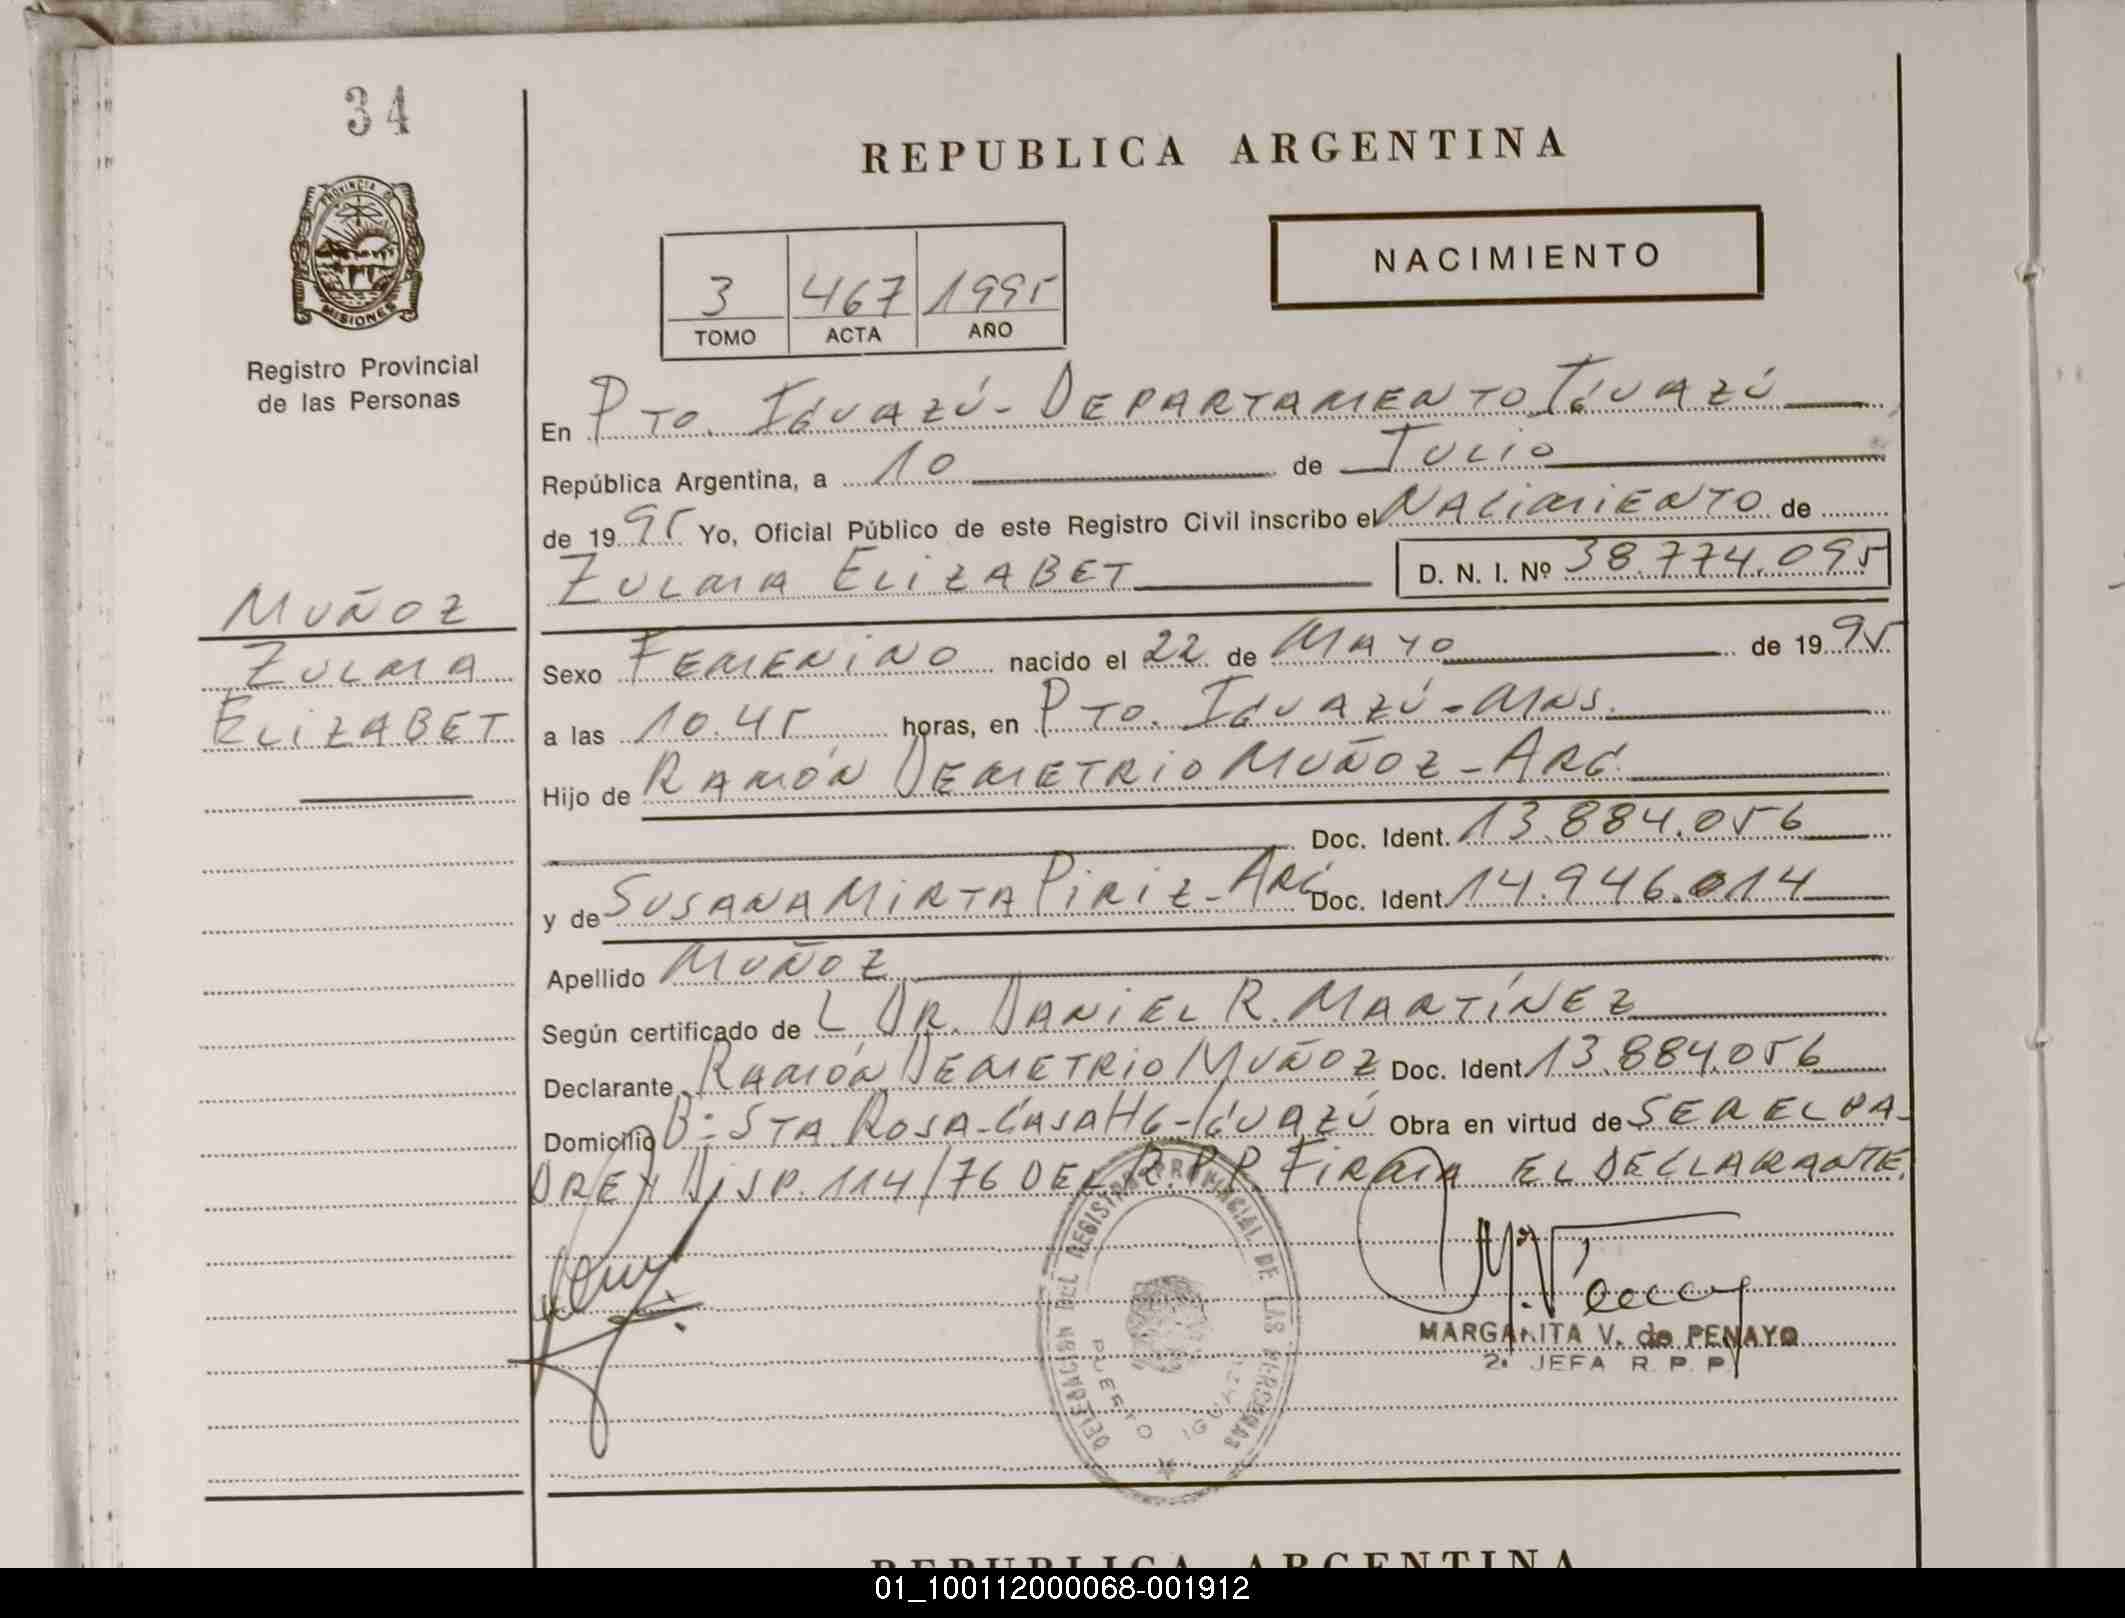 34
PROVINCIA DE
MISIONES
Registro Provincial
de las Personas
MUÑOZ
ZULMA
ELIZABET
REPUBLICA ARGENTINA
NACIMIENTO
3 467 1995
TOMO ACTA AÑO
En PTO. IGUAZÚ - DEPARTAMENTO IGUAZÚ
República Argentina, a 10 de JULIO
de 1995 Yo, Oficial Público de este Registro Civil inscribo el NACIMIENTO de
ZULMA ELIZABET D. N. I. Nº 38.774.095
Sexo FEMENINO nacido el 22 de MAYO de 1995
a las 10.45 horas, en PTO. IGUAZÚ - MNS.
Hijo de RAMÓN DEMETRIO MUÑOZ - ARG.
Doc. Ident. 13.884.056
y de SUSANA MIRTA PIRIZ - ARG. Doc. Ident. 14.946.014
Apellido MUÑOZ
Según certificado de L DR. DANIEL R. MARTÍNEZ
Declarante RAMÓN DEMETRIO MUÑOZ Doc. Ident. 13.884.056
Domicilio Bº STA ROSA - CASA H6 - IGUAZÚ Obra en virtud de SER EL PA-
DRE Y DISP. 114/76 DEL R.P.P. FIRMA EL DECLARANTE.
DELEGACION DEL REGISTRO PROVINCIAL DE LAS PERSONAS
PUERTO IGUAZU
MARGARITA V. de PENAYO
2ª JEFA R. P. P.
REPUBLICA ARGENTINA
01_100112000068-001912